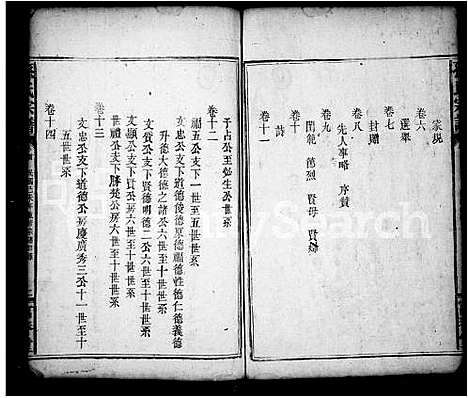 家規
卷六
選舉
卷七
封贈
卷八
先人事略 序贊
卷九
閨範 節烈 賢母 賢婦
卷十
詩
卷十一
于占公至弘生公世系
卷十二
福五公支下一世至五世世系
文忠公支下道德俊德厚德福德性德仁德義德
升德大德德之諸公六世至十世世系
文質公支下賢德明德二公六世至十世世系
文顯公支下以貞公房六世至十世世系
世禮公支下勝楚公房六世至十世世系
卷十三
文忠公支下道德公房慶廣秀三公十一世至十
五世世系
卷十四